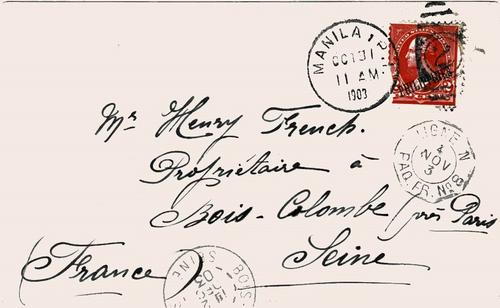 MANILA P.I.
OCT 31
11 AM
1903
Mr Henry French.
Propriétaire à
Bois-Colombe près Paris
Seine
(France)
LIGNE N
4
NOV
3
PAQ. FR. No 8
BOIS
SEINE